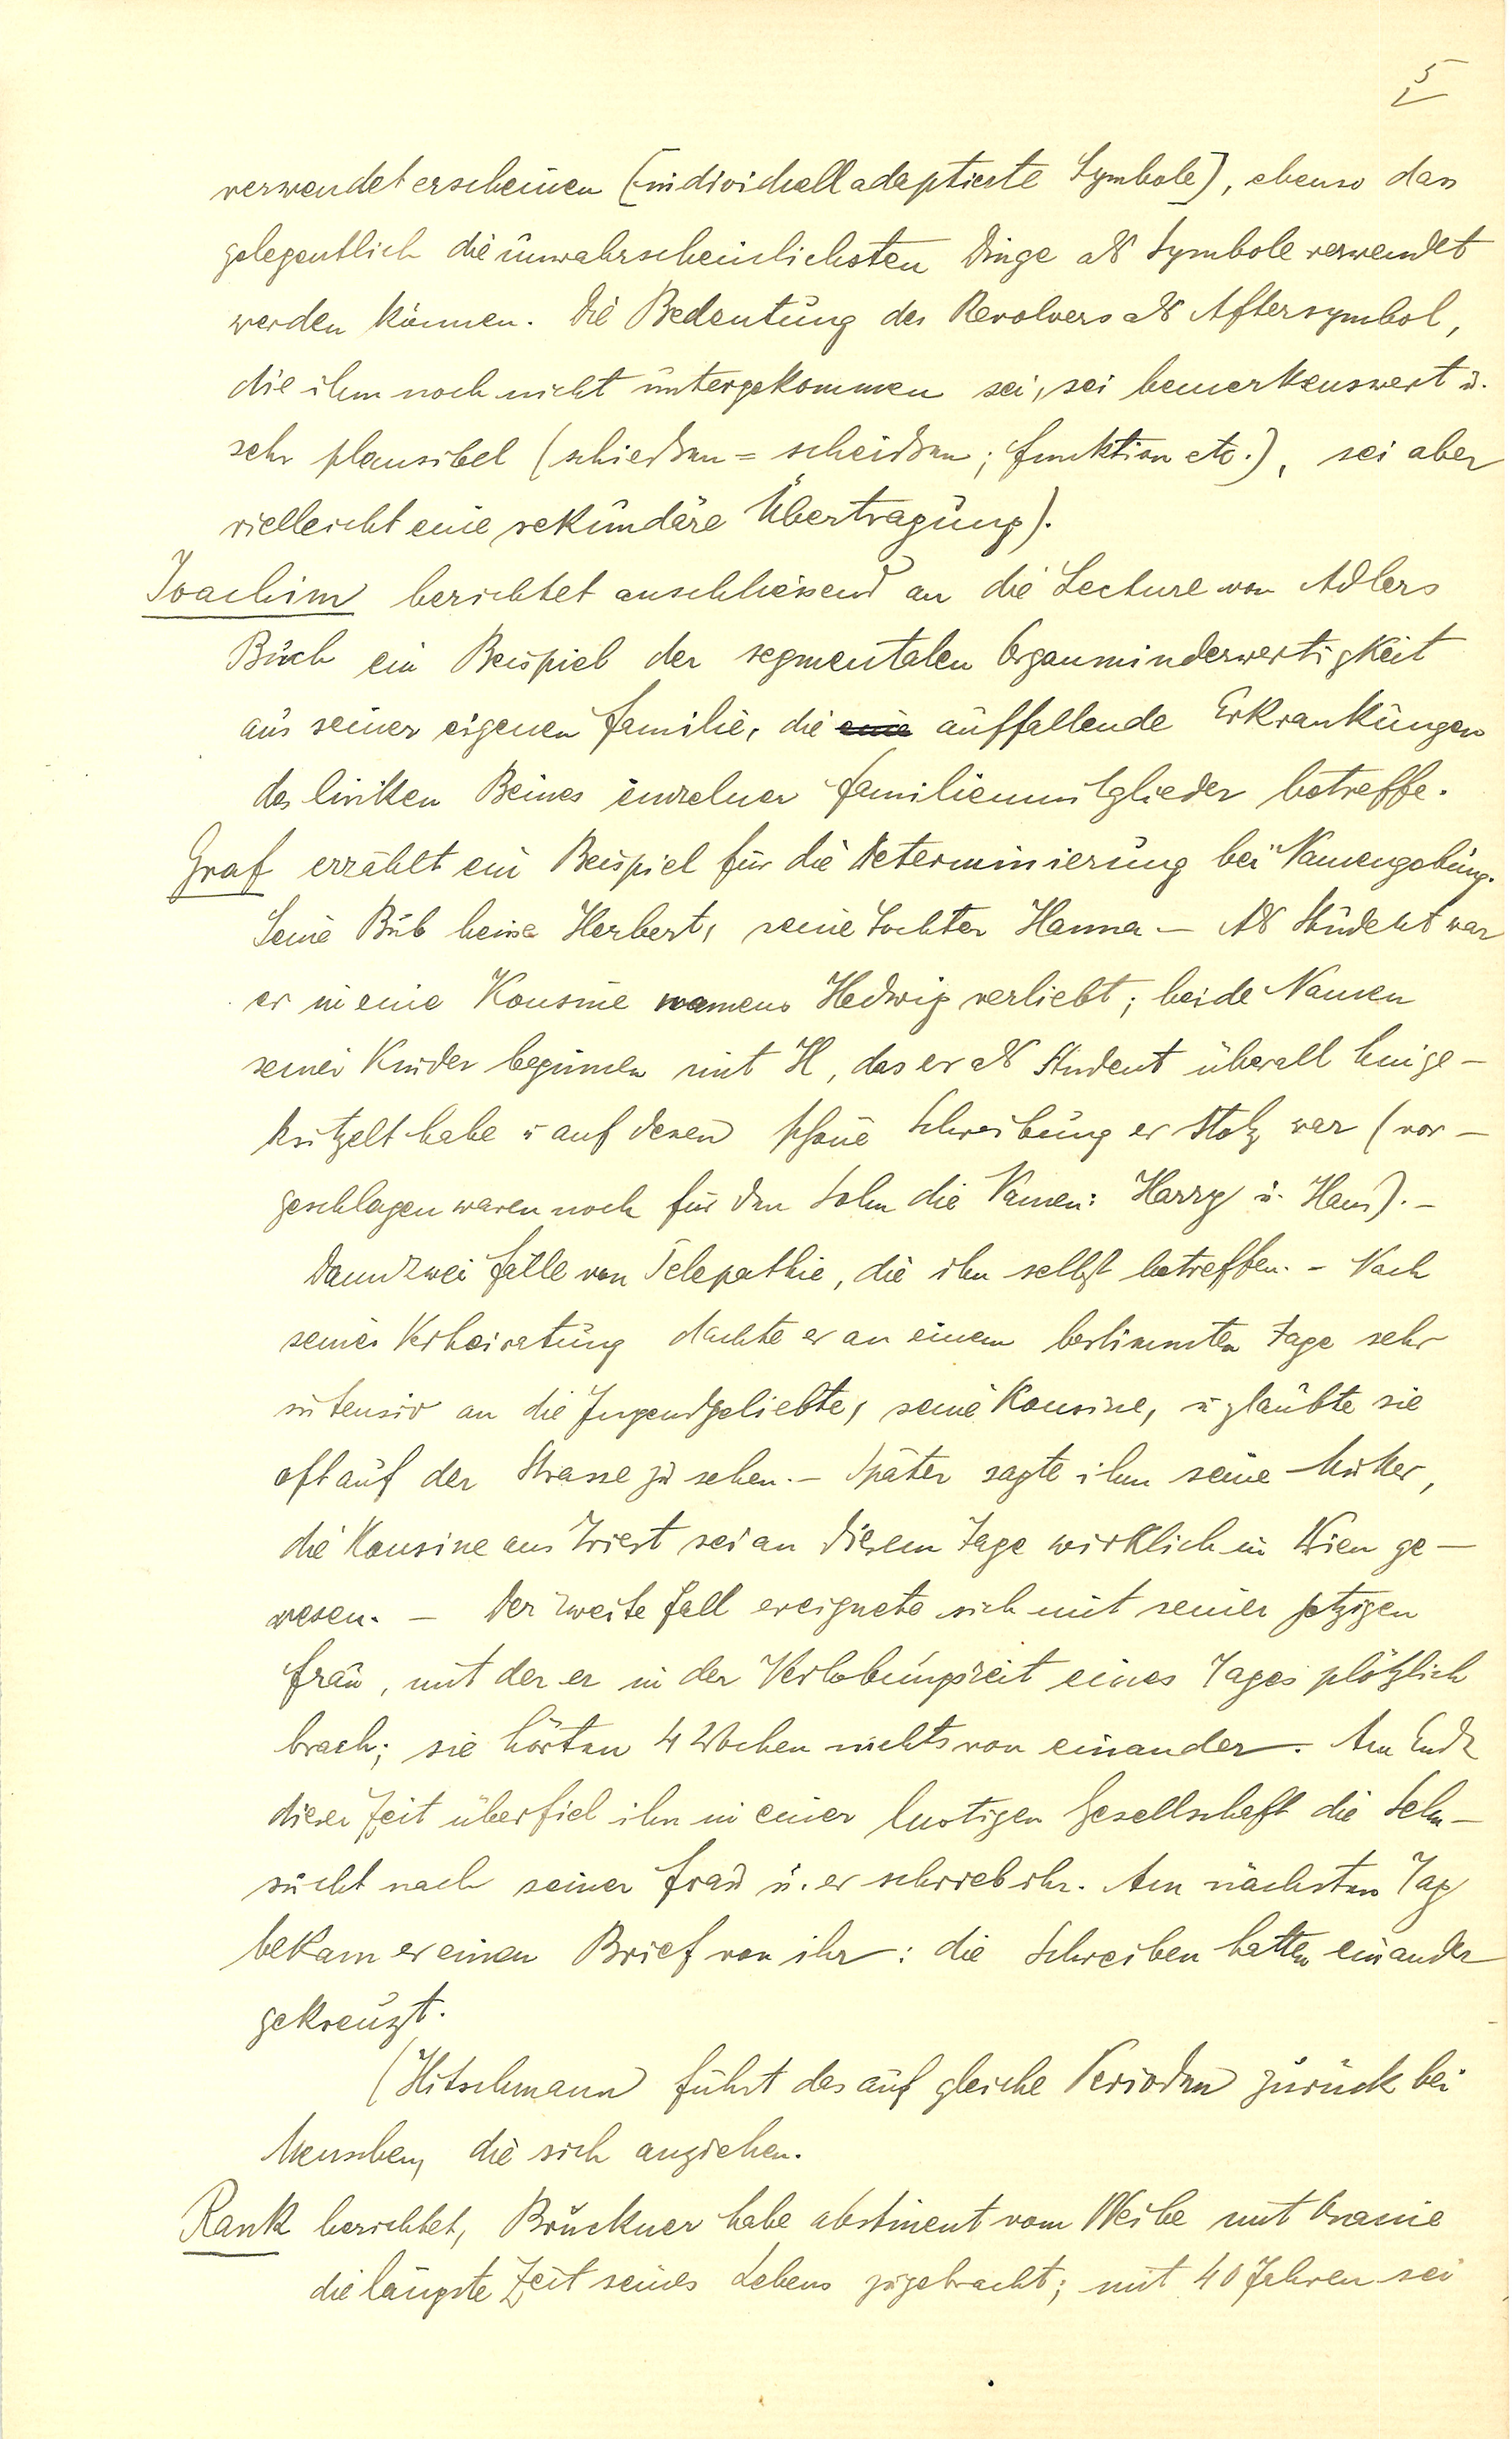 5
verwendet erscheinen [individuell adaptierte Symbole], ebenso dass
gelegentlich die unwahrscheinlichsten Dinge als Symbole verwendet
werden können. Die Bedeutung des Revolvers als Aftersymbol,
die ihm noch nicht untergekommen sei, sei bemerkenswert u.
sehr plausibel (schießen = scheißen; Funktion etc.), sei aber
vielleicht eine sekundäre Übertragung).
Joachim berichtet anschliessend an die Lecture von Adlers
Buch ein Beispiel der segmentalen Organminderwertigkeit
aus seiner eigenen Familie, die eine auffallende Erkrankungen
des linken Beines einzelner Familienmitglieder betreffe.
Graf erzählt ein Beispiel für die Determinierung bei Namengebung.
Seine Bub heisse Herbert, seine Tochter Hanna – Als Student war
er in eine Kousine namens Hedwig verliebt; beide Namen
seiner Kinder beginnen mit H, das er als Student überall hinge-
kritzelt habe u auf dessen schöne Schreibung er stolz war (vor-
geschlagen waren noch für den Sohn die Namen: Harry u. Hans). –
Dann zwei Fälle von Telepathie, die ihn selbst betreffen. – Nach
seiner Verheiratung dachte er an einem bestimmten Tage sehr
intensiv an die Jugendgeliebte, seine Kousine, u glaubte sie
oft auf der Strasse zu sehen. – Später sagte ihm seine Mutter,
die Kousine aus Triest sei an diesem Tage wirklich in Wien ge-
wesen. – Der zweite Fall ereignete sich mit seiner jetzigen
Frau, mit der er in der Verlobungszeit eines Tages plötzlich
brach; sie hörten 4 Wochen nichts von einander. Am Ende
dieser Zeit überfiel ihn in einer lustigen Gesellschaft die Sehn-
sucht nach seiner Frau u. er schrieb ihr. Am nächsten Tag
bekam er einen Brief von ihr: die Schreiben hatten einander
gekreuzt.
(Hitschmann führt das auf gleiche Perioden zurück bei
Menschen, die sich anziehen.
Rank berichtet, Bruckner habe abstinent vom Weibe mit Onanie
die längste Zeit seines Lebens zugebracht; mit 40 Jahren sei